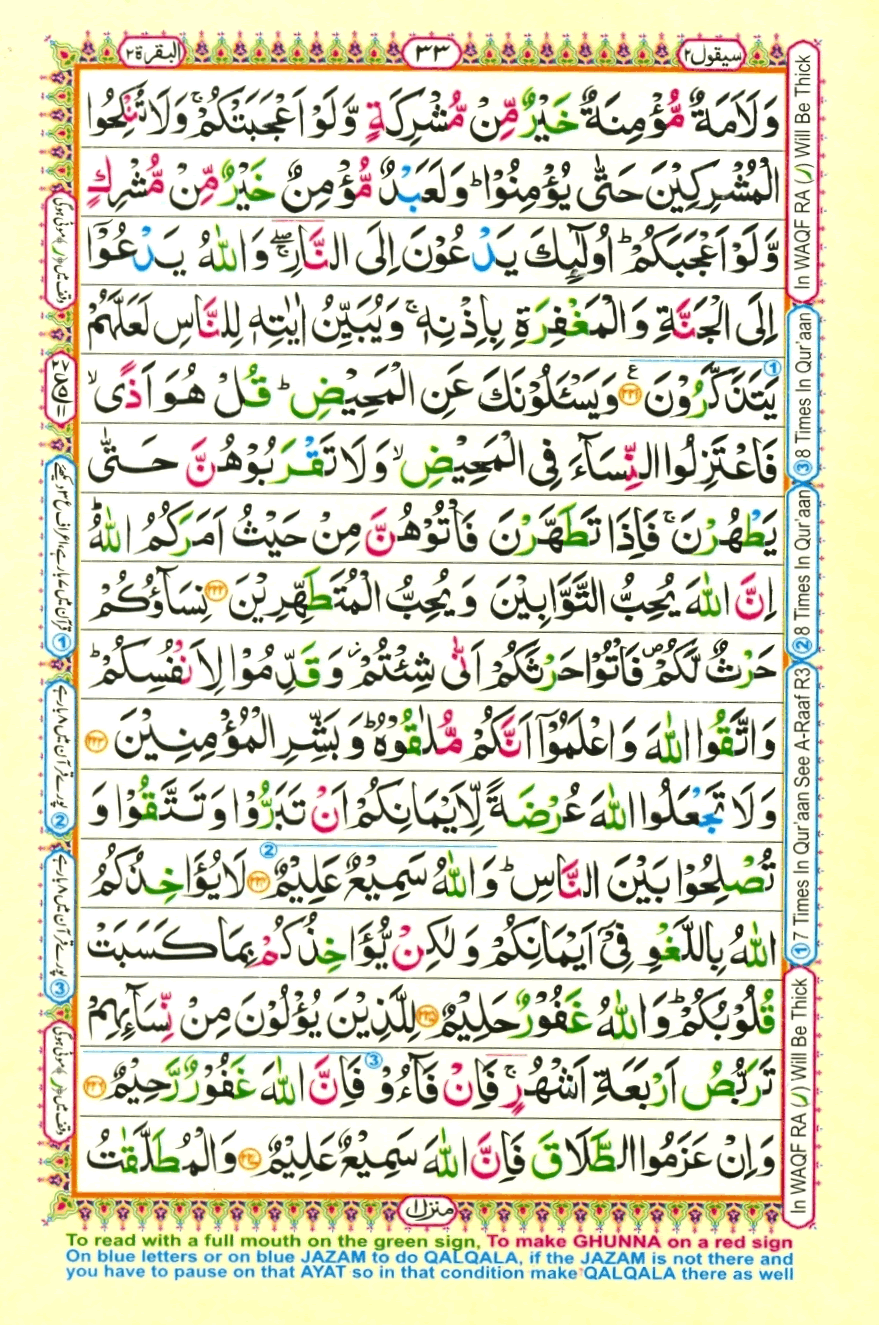 سیقول ۲
۳۳
البقرة ۲
وَلَاَمَةٌ مُّؤْمِنَةٌ خَيْرٌ مِّنْ مُّشْرِكَةٍ وَّلَوْ اَعْجَبَتْكُمْ ۚ وَلَا تُنْكِحُوا
الْمُشْرِكِيْنَ حَتّٰى يُؤْمِنُوْا ؕ وَلَعَبْدٌ مُّؤْمِنٌ خَيْرٌ مِّنْ مُّشْرِكٍ
وَّلَوْ اَعْجَبَكُمْ ؕ اُولٰٓئِكَ يَدْعُوْنَ اِلَى النَّارِ ۖۚ وَاللّٰهُ يَدْعُوْٓا
اِلَى الْجَنَّةِ وَالْمَغْفِرَةِ بِاِذْنِهٖ ۚ وَيُبَيِّنُ اٰيٰتِهٖ لِلنَّاسِ لَعَلَّهُمْ
يَتَذَكَّرُوْنَ ﴿۲۲۱﴾ ع وَيَسْـَٔلُوْنَكَ عَنِ الْمَحِيْضِ ؕ قُلْ هُوَ اَذًى ۙ
فَاعْتَزِلُوا النِّسَآءَ فِى الْمَحِيْضِ ۙ وَلَا تَقْرَبُوْهُنَّ حَتّٰى
يَطْهُرْنَ ۚ فَاِذَا تَطَهَّرْنَ فَاْتُوْهُنَّ مِنْ حَيْثُ اَمَرَكُمُ اللّٰهُ ؕ
اِنَّ اللّٰهَ يُحِبُّ التَّوَّابِيْنَ وَيُحِبُّ الْمُتَطَهِّرِيْنَ ﴿۲۲۲﴾ نِسَآؤُكُمْ
حَرْثٌ لَّكُمْ ۪ فَاْتُوْا حَرْثَكُمْ اَنّٰى شِئْتُمْ ؗ وَقَدِّمُوْا لِاَنْفُسِكُمْ ؕ
وَاتَّقُوا اللّٰهَ وَاعْلَمُوْٓا اَنَّكُمْ مُّلٰقُوْهُ ؕ وَبَشِّرِ الْمُؤْمِنِيْنَ ﴿۲۲۳﴾
وَلَا تَجْعَلُوا اللّٰهَ عُرْضَةً لِّاَيْمَانِكُمْ اَنْ تَبَرُّوْا وَتَتَّقُوْا وَ
تُصْلِحُوْا بَيْنَ النَّاسِ ؕ وَاللّٰهُ سَمِيْعٌ عَلِيْمٌ ﴿۲۲۴﴾ لَا يُؤَاخِذُكُمُ
اللّٰهُ بِاللَّغْوِ فِىْٓ اَيْمَانِكُمْ وَلٰكِنْ يُّؤَاخِذُكُمْ بِمَا كَسَبَتْ
قُلُوْبُكُمْ ؕ وَاللّٰهُ غَفُوْرٌ حَلِيْمٌ ﴿۲۲۵﴾ لِلَّذِيْنَ يُؤْلُوْنَ مِنْ نِّسَآئِهِمْ
تَرَبُّصُ اَرْبَعَةِ اَشْهُرٍ ۚ فَاِنْ فَآءُوْ فَاِنَّ اللّٰهَ غَفُوْرٌ رَّحِيْمٌ ﴿۲۲۶﴾
وَاِنْ عَزَمُوا الطَّلَاقَ فَاِنَّ اللّٰهَ سَمِيْعٌ عَلِيْمٌ ﴿۲۲۷﴾ وَالْمُطَلَّقٰتُ
منزل ۱
In WAQF RA (ر) Will Be Thick
③ 8 Times In Qur'aan
② 8 Times In Qur'aan
① 7 Times In Qur'aan See A-Raaf R3
In WAQF RA (ر) Will Be Thick
وقف میں (ر) موٹی ہوگی
① قرآن میں سات بار ہے اعراف ع ۳ دیکھئے
② پورے قرآن میں ۸ بار ہے
③ پورے قرآن میں ۸ بار ہے
وقف میں (ر) موٹی ہوگی
To read with a full mouth on the green sign, To make GHUNNA on a red sign
On blue letters or on blue JAZAM to do QALQALA, if the JAZAM is not there and
you have to pause on that AYAT so in that condition make QALQALA there as well